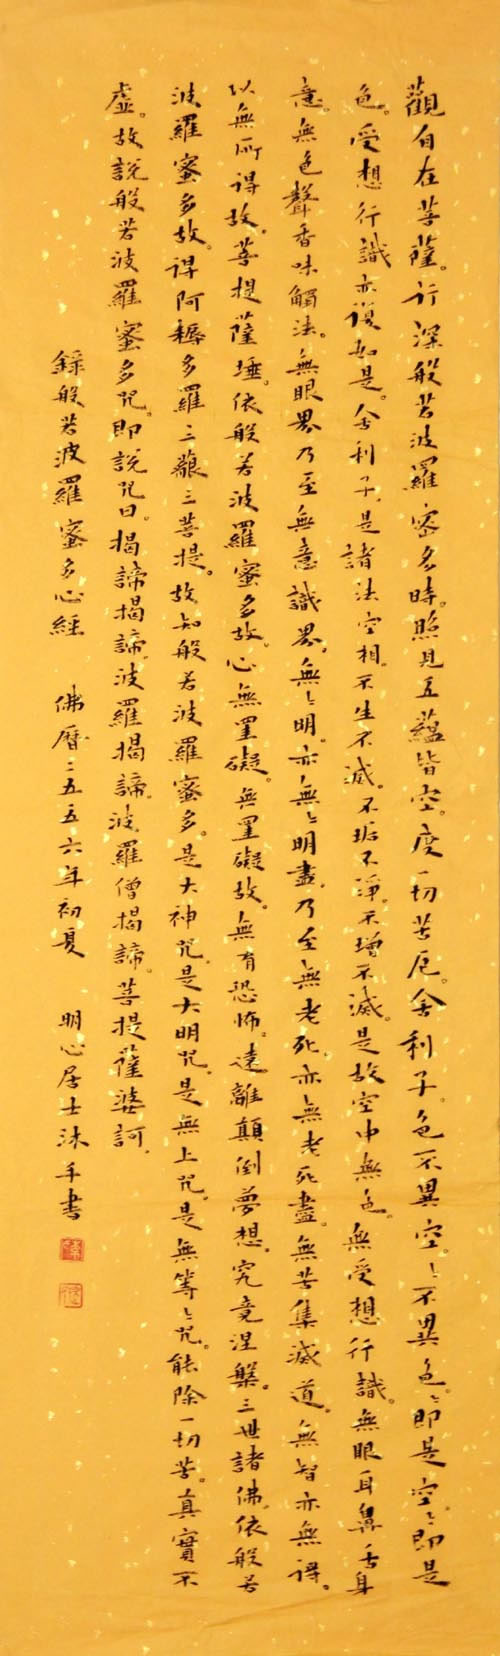 觀自在菩薩。行深般若波羅蜜多時。照見五蘊皆空。度一切苦厄。舍利子。色不異空。〻不異色。〻即是空。〻即是
色。受想行識亦復如是。舍利子。是諸法空相。不生不滅。不垢不淨。不增不減。是故空中無色。無受想行識。無眼耳鼻舌身
意。無色聲香味觸法。無眼界乃至無意識界。無〻明。亦無〻明盡。乃至無老死。亦無老死盡。無苦集滅道。無智亦無得。
以無所得故。菩提薩埵。依般若波羅蜜多故。心無罣礙。無罣礙故。無有恐怖。遠離顛倒夢想。究竟涅槃。三世諸佛。依般若
波羅蜜多故。得阿耨多羅三藐三菩提。故知般若波羅蜜多。是大神咒。是大明咒。是無上咒。是無等〻咒。能除一切苦。真實不
虛。故說般若波羅蜜多咒。即說咒曰。揭諦揭諦。波羅揭諦。波羅僧揭諦。菩提薩婆訶。
錄般若波羅蜜多心經 佛曆二五五六年初夏 明心居士沐手書